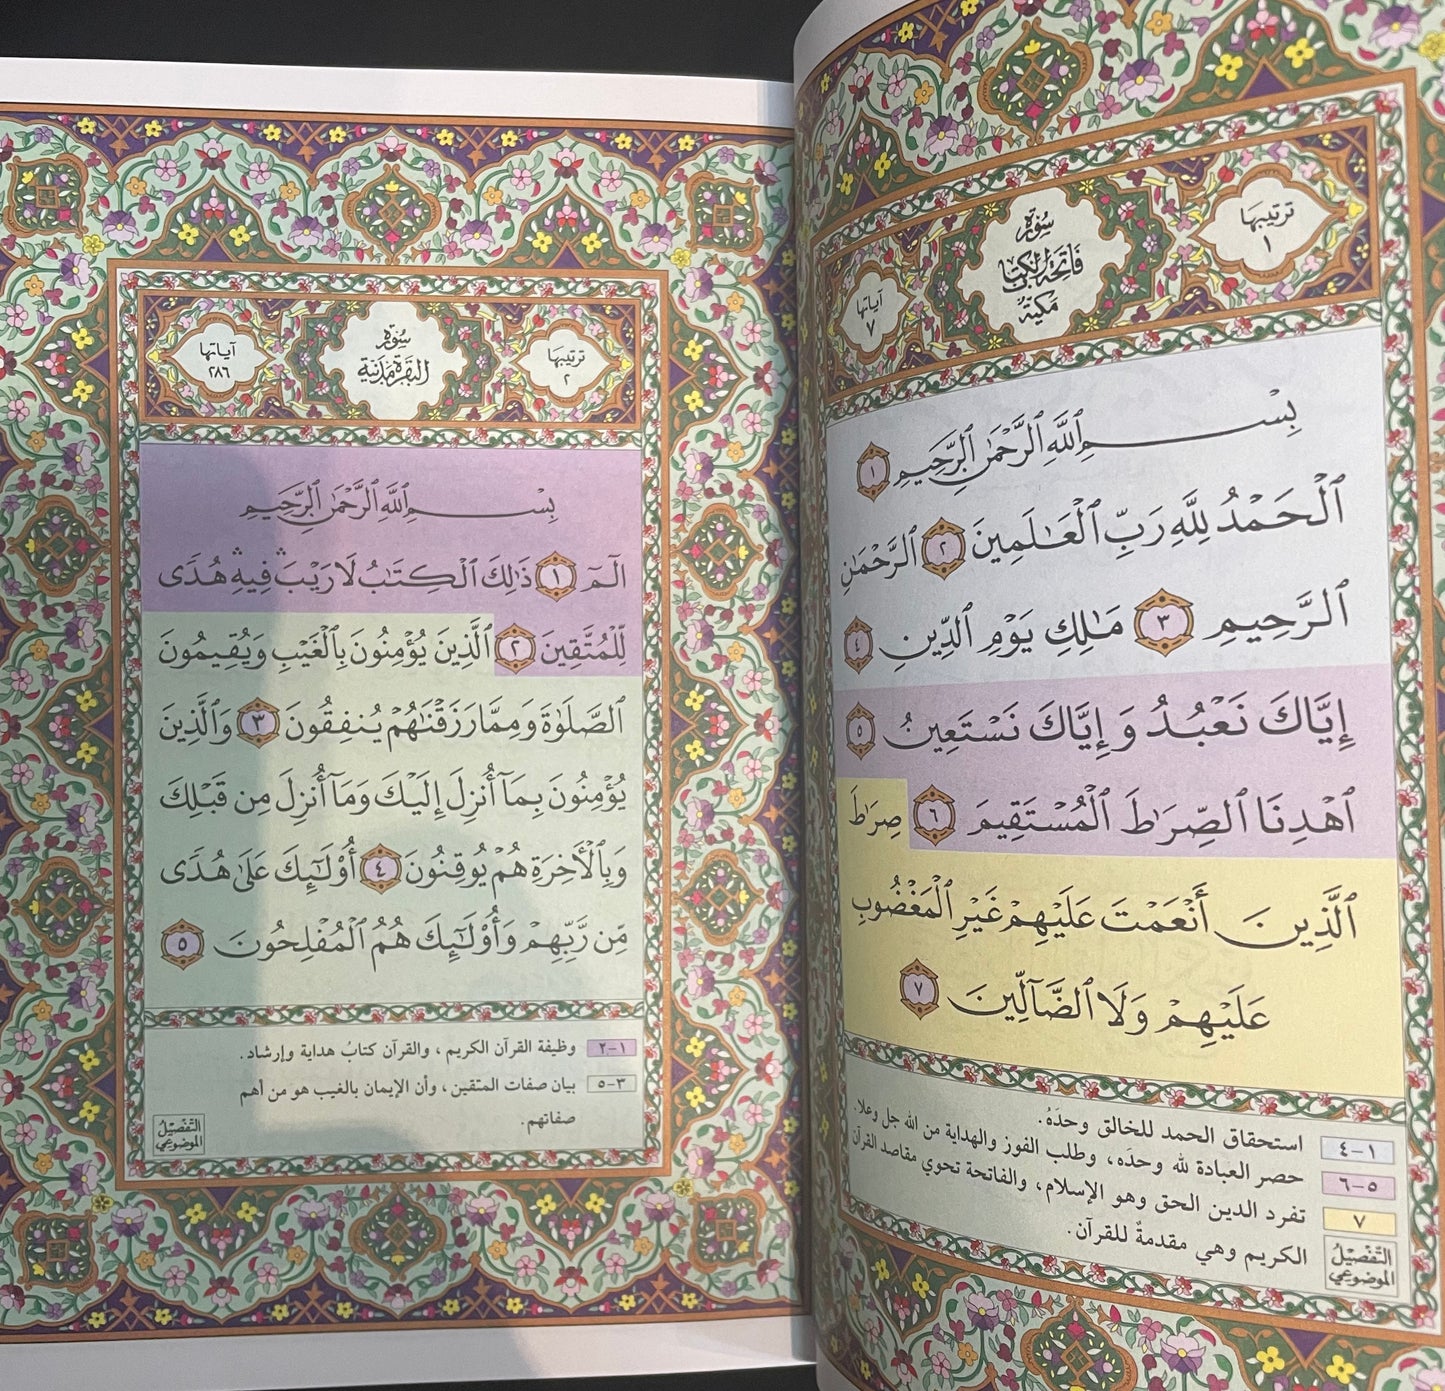 ترتيبها
١
سُورَةُ
فَاتِحَةِ الكِتَابِ
مَكيَّةٌ
آياتها
٧
بِسْمِ ٱللَّهِ ٱلرَّحْمَٰنِ ٱلرَّحِيمِ ١
ٱلْحَمْدُ لِلَّهِ رَبِّ ٱلْعَٰلَمِينَ ٢ ٱلرَّحْمَٰنِ
ٱلرَّحِيمِ ٣ مَٰلِكِ يَوْمِ ٱلدِّينِ ٤
إِيَّاكَ نَعْبُدُ وَإِيَّاكَ نَسْتَعِينُ ٥
ٱهْدِنَا ٱلصِّرَٰطَ ٱلْمُسْتَقِيمَ ٦ صِرَٰطَ
ٱلَّذِينَ أَنْعَمْتَ عَلَيْهِمْ غَيْرِ ٱلْمَغْضُوبِ
عَلَيْهِمْ وَلَا ٱلضَّآلِّينَ ٧
١-٤ استحقاق الحمد للخالق وحدَهُ.
٥-٦ حصر العبادة لله وحدَه، وطلب الفوز والهداية من الله جل وعلا.
٧ تفرد الدين الحق وهو الإسلام، والفاتحة تحوي مقاصد القرآن
الكريم وهي مقدمةٌ للقرآن.
التَّفْصِيْلُ
الموضوعي
ترتيبها
٢
سُورَةُ
البَقَرَةِ مَدَنيَة
آياتها
٢٨٦
بِسْمِ ٱللَّهِ ٱلرَّحْمَٰنِ ٱلرَّحِيمِ
الٓمٓ ١ ذَٰلِكَ ٱلْكِتَٰبُ لَا رَيْبَۛ فِيهِۛ هُدًى
لِّلْمُتَّقِينَ ٢ ٱلَّذِينَ يُؤْمِنُونَ بِٱلْغَيْبِ وَيُقِيمُونَ
ٱلصَّلَوٰةَ وَمِمَّا رَزَقْنَٰهُمْ يُنفِقُونَ ٣ وَٱلَّذِينَ
يُؤْمِنُونَ بِمَآ أُنزِلَ إِلَيْكَ وَمَآ أُنزِلَ مِن قَبْلِكَ
وَبِٱلْأَخِرَةِ هُمْ يُوقِنُونَ ٤ أُو۟لَٰٓئِكَ عَلَىٰ هُدًى
مِّن رَّبِّهِمْ وَأُو۟لَٰٓئِكَ هُمُ ٱلْمُفْلِحُونَ ٥
١-٢ وظيفة القرآن الكريم، والقرآن كتابُ هداية وإرشاد.
٣-٥ بيان صفات المتقين، وأن الإيمان بالغيب هو من أهم
صفاتهم.
التَّفْصِيْلُ
الموضوعي